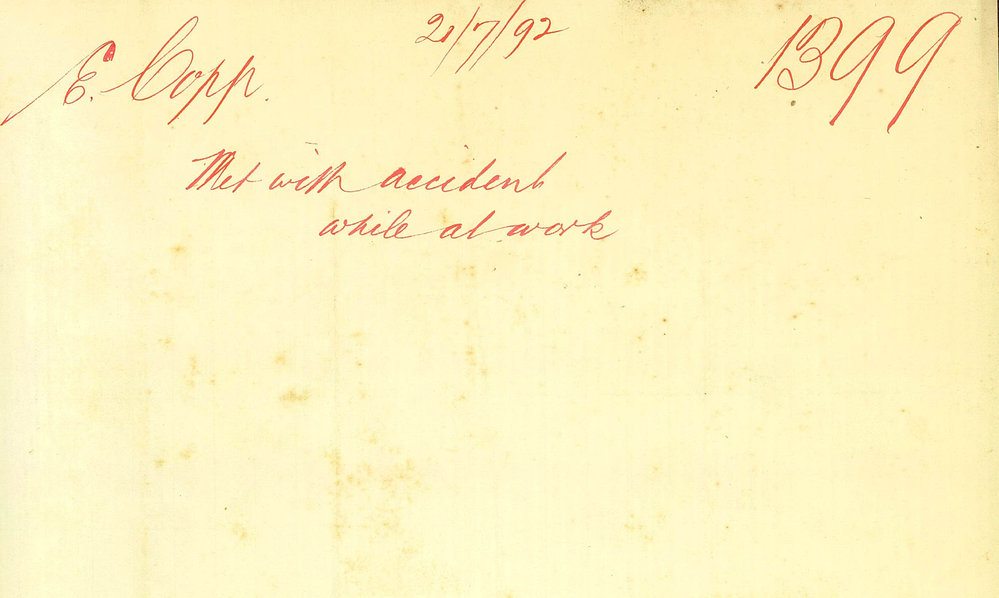 E. Copp. 21/7/92 1399
Met with accident
while at work